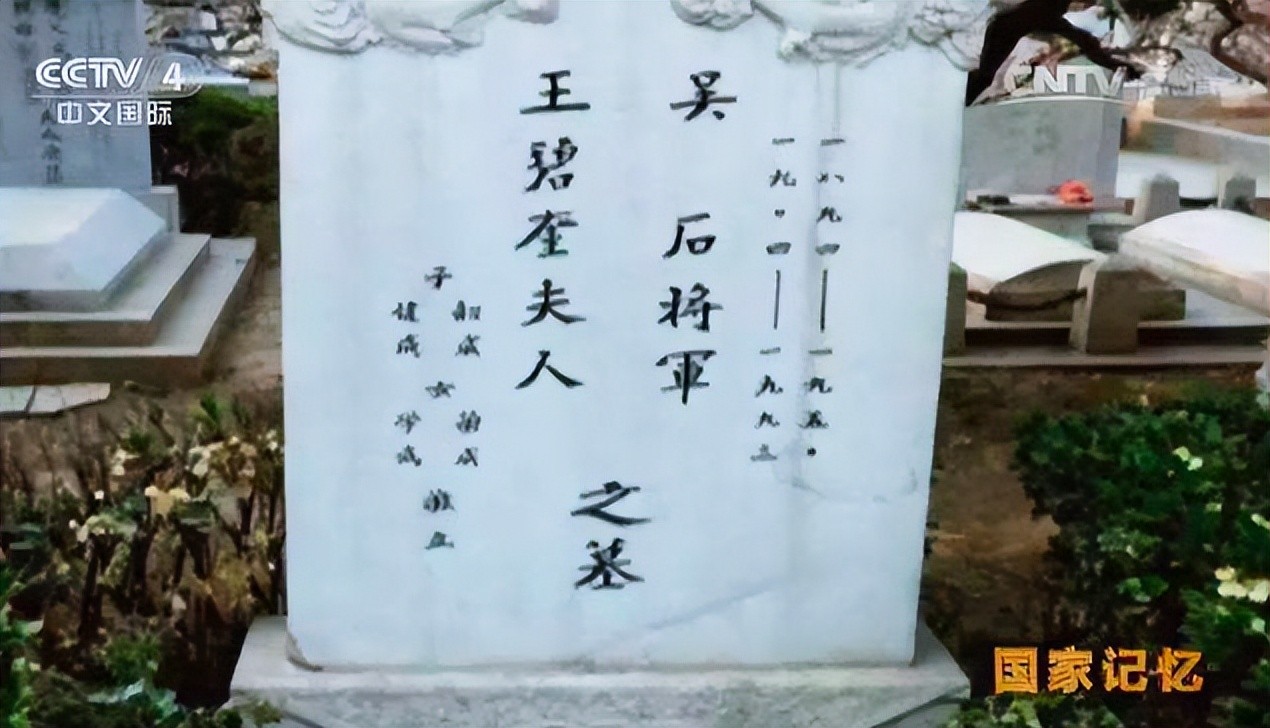 CCTV 4
中文国际
CNTV
一八九四——一九五〇
一九〇四——一九九三
吴 石将军
王碧奎夫人
之墓
子
韶成
健成
女
国家记忆